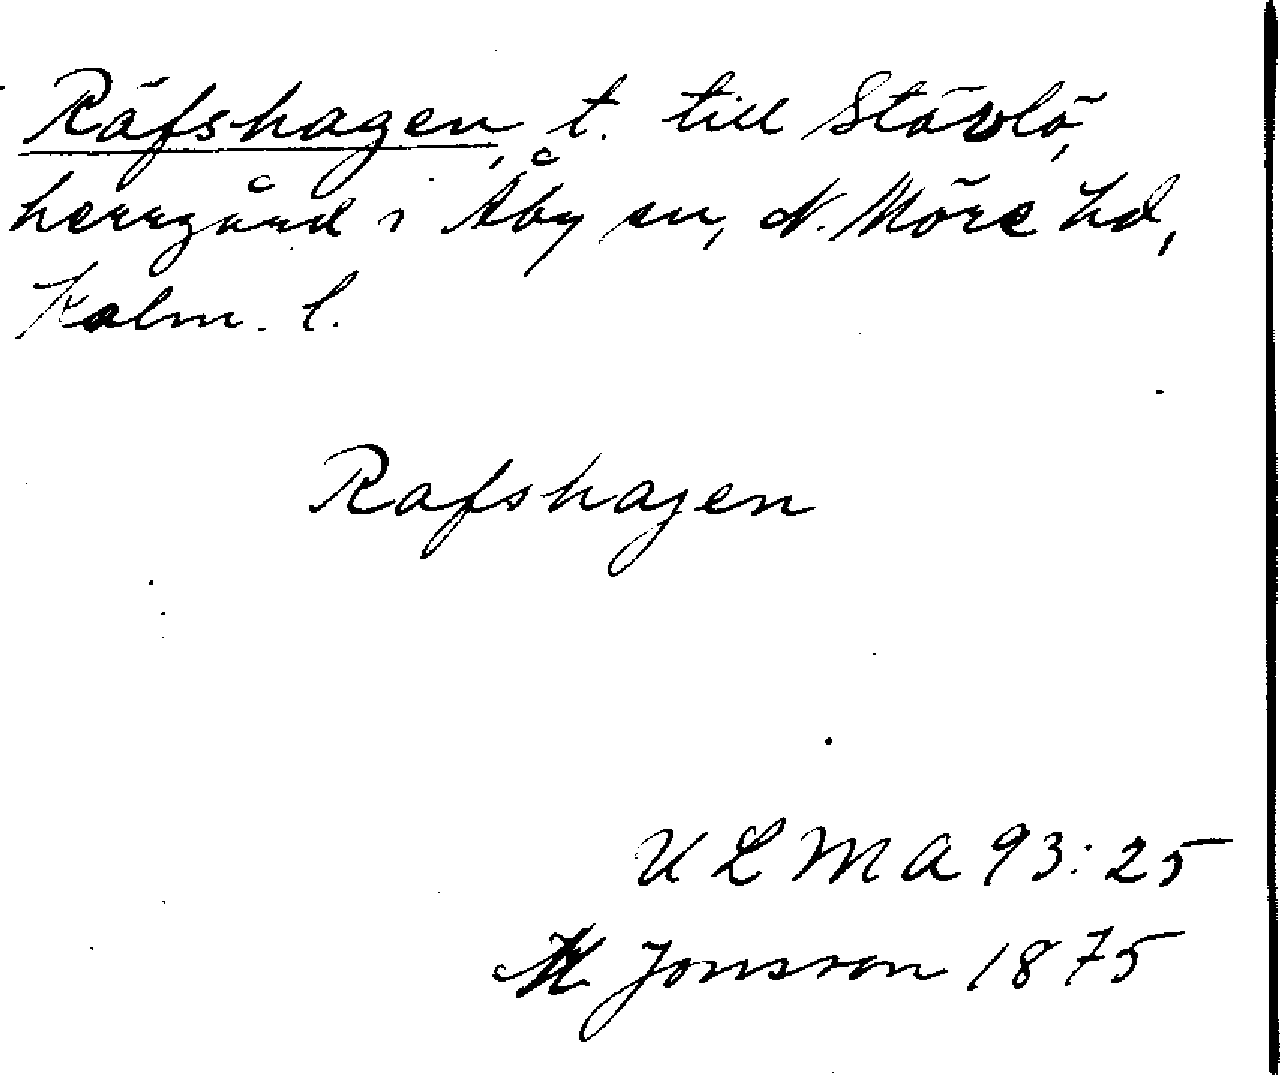 Räfshagen, t. till Stävlö,
herrgård i Åby sn, N. Möre hd,
Kalm. l.
Rafshagen
ULMA 93:25
M Jonsson 1875